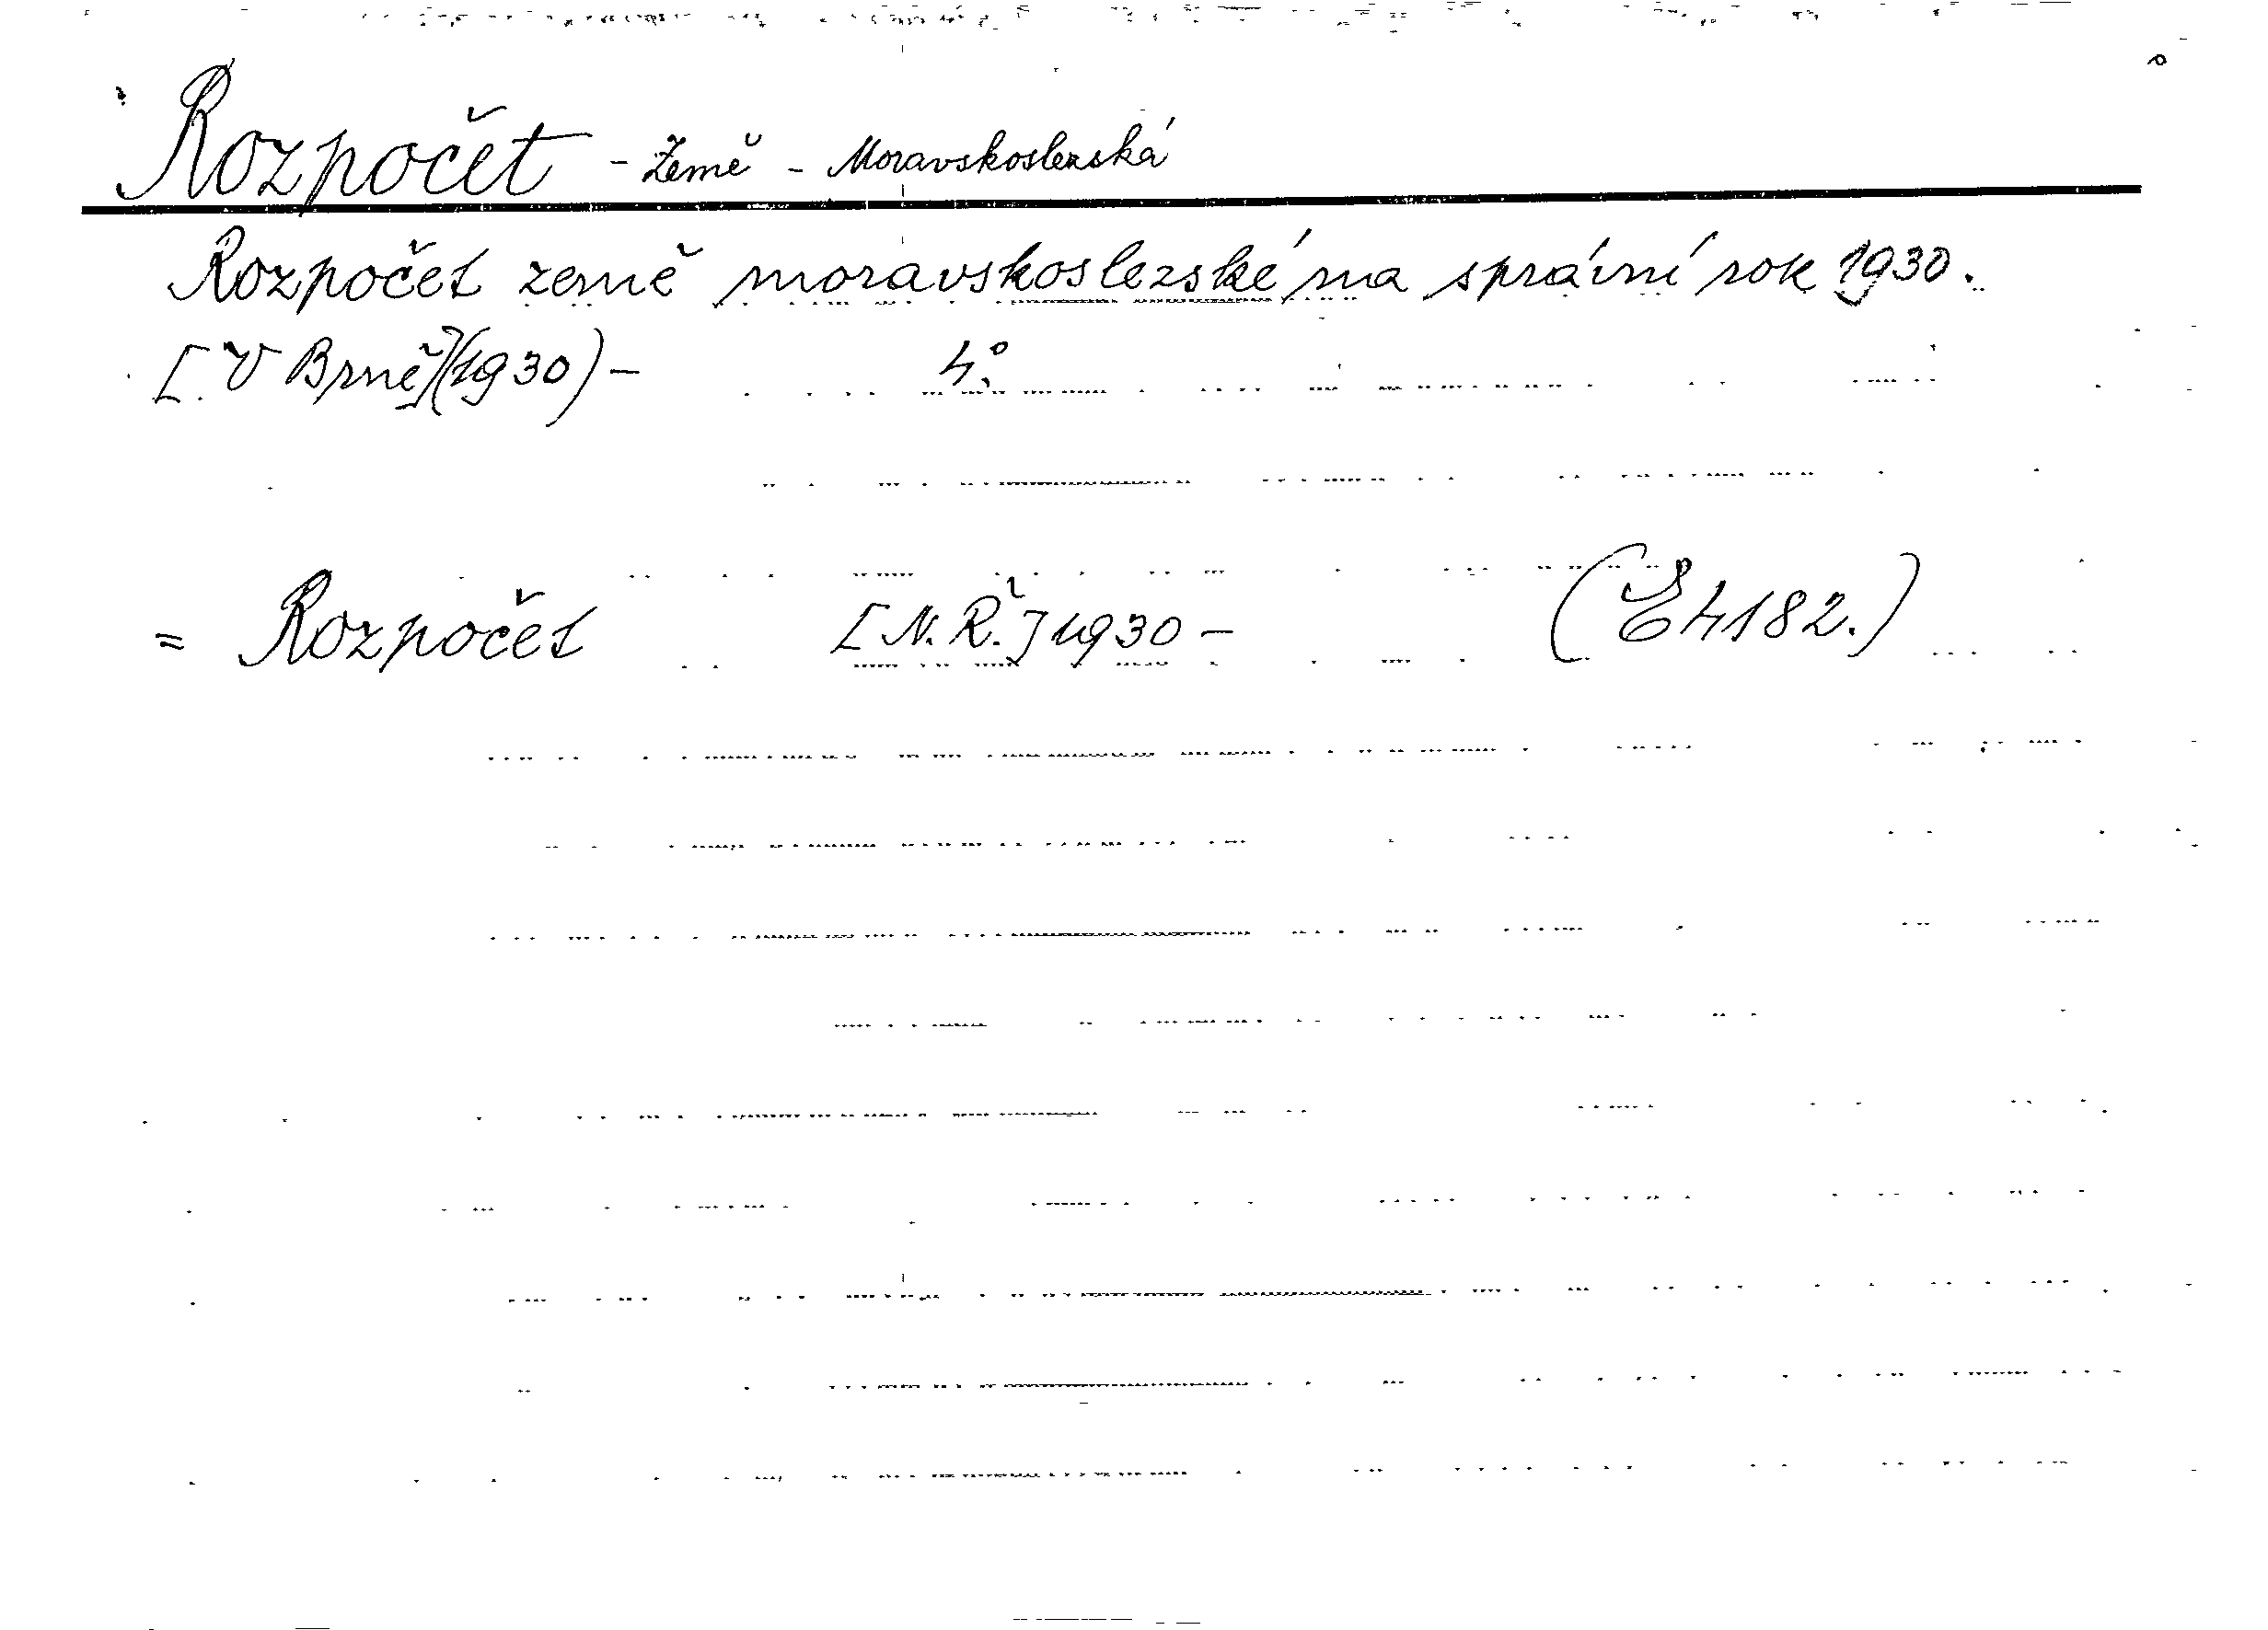 Rozpočet - Země - Moravskoslezská
Rozpočet země moravskoslezské na správní rok 1930.
[V Brně](1930) - 4°.
= Rozpočet [N. Ř.] 1930 - (E 4182.)